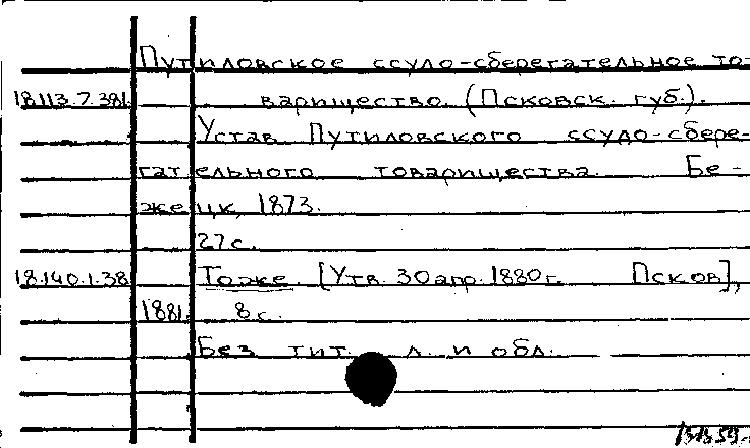 Путиловское ссудо-сберегательное то-
18.113.7.381. варищество. (Псковск. губ.).
Устав Путиловского ссудо-сбере-
гательного товарищества. Бе-
жецк, 1873.
27 с.
18.140.1.38 То же. [Утв. 30 апр. 1880 г. Псков],
1881. 8 с.
Без тит. л. и обл.